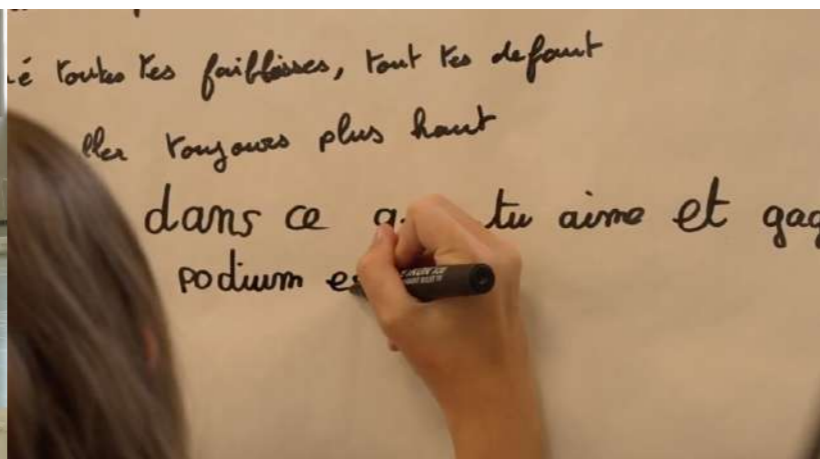 toutes tes faiblesses, tout tes defaut
toujours plus haut
dans ce tu aime et
podium